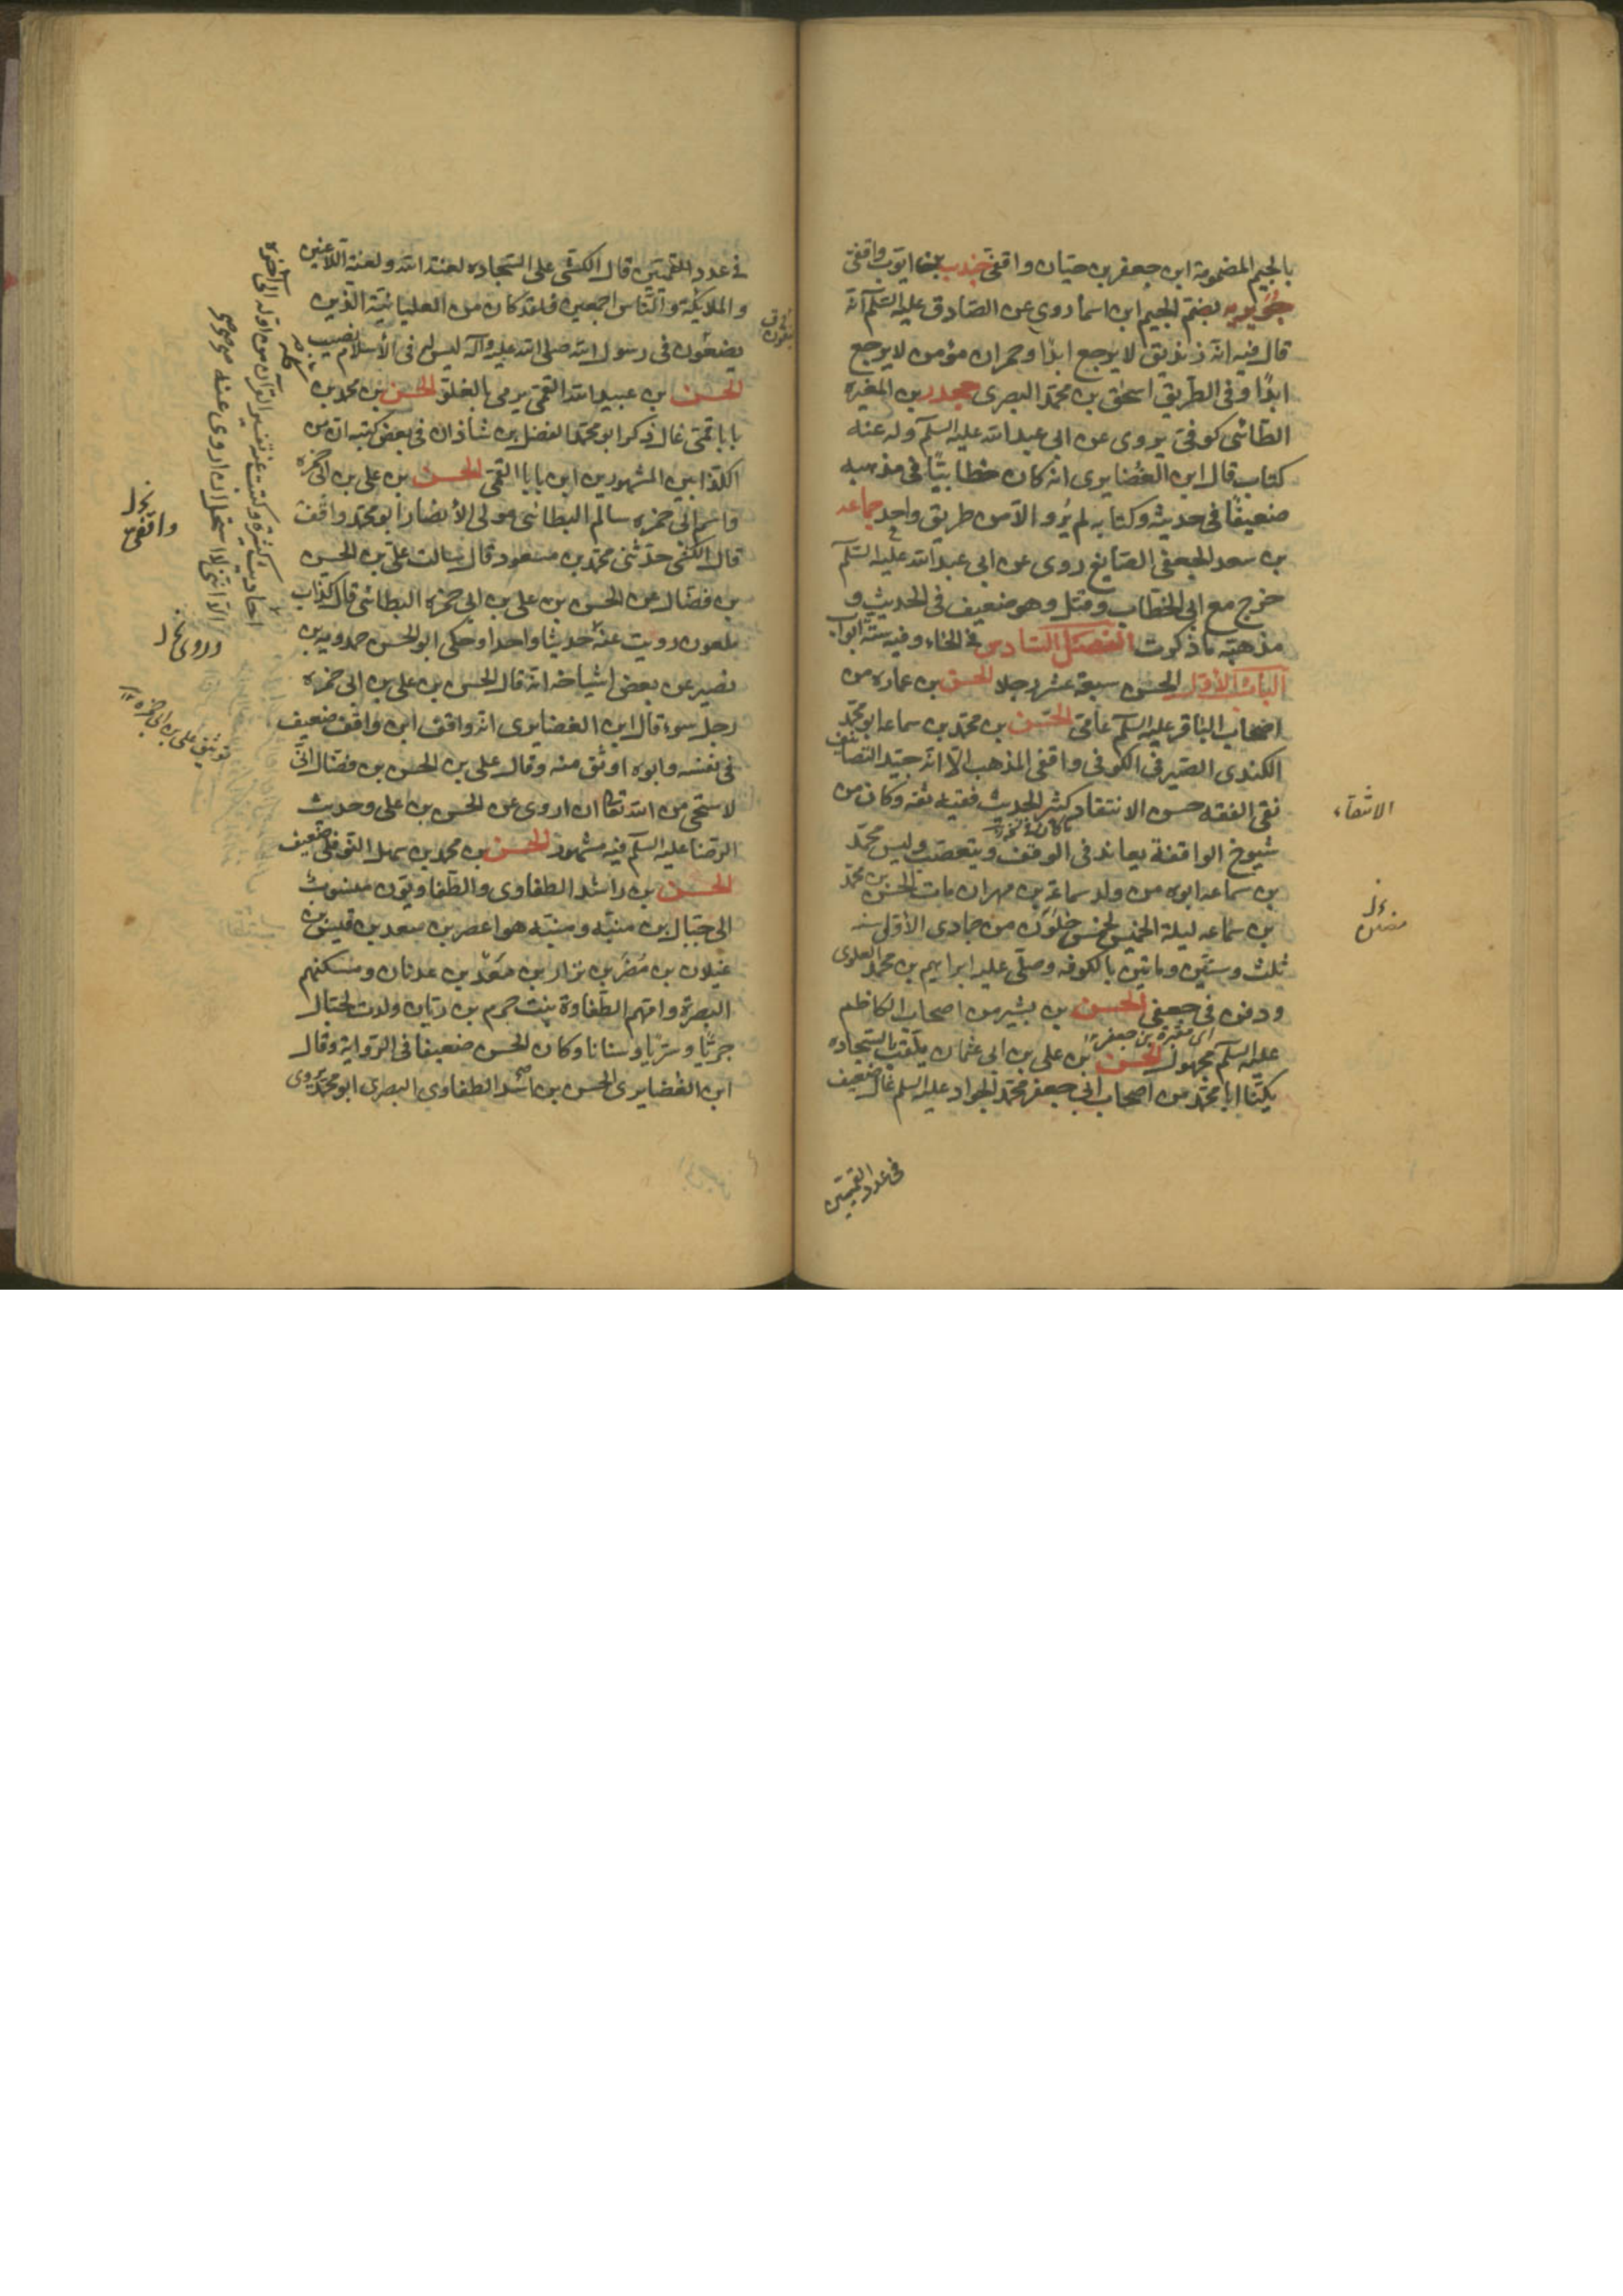 بالجيم المضمومة ابن جعفر بن حيان واقفى جندب بن ايوب واقفى
جويريه بضم الجيم ابن اسما روى عن الصادق عليه السلم انه
قال فيه انه زنديق لا يرجع ابدا وحمران مؤمن لا يرجع
ابدا وفى الطريق اسحق بن محمد البصرى جحدر بن المغيره
الطائى كوفى يروى عن ابى عبد الله عليه السلم وله عنه
كتاب قال ابن الغضايرى انه كان خطابيا فى مذهبه
ضعيفا فى حديثه وكتابه لم يرو الا من طريق واحد جماعه
بن سعد الجعفى الصايغ روى عن ابى عبد الله عليه السلم
خرج مع ابى الخطاب وقتل وهو ضعيف فى الحديث و
مذهبه ما ذكرت الفصل السادس فى الحاء وفيه ستة ابواب
الباب الاول الحسن سبعة عشر رجلا الحسن بن عماره من
اصحاب الباقر عليه السلم عامى الحسن بن محمد بن سماعه ابو محمد
الكندى الصيرفى الكوفى واقفى المذهب الا انه جيد التصانيف
نقى الفقه حسن الانتقاد كثير الحديث فقيه ثقه وكان من
شيوخ الواقفة يعاند فى الوقف ويتعصب وليس محمد
بن سماعه ابوه من ولد سماعة بن مهران مات الحسن بن محمد
بن سماعه ليلة الخميس لخمس خلون من جمادى الأولى سنه
ثلث وستين وماتين بالكوفه وصلى عليه ابراهيم بن محمد العلوى
ودفن فى جعفى الحسن بن بشير من اصحاب الكاظم
اى مقبرة بن جعفر
عليه السلم مجهول الحسن بن على بن ابى عثمان يلقب بالسجاده
يكنا ابا محمد من اصحاب ابى جعفر محمد الجواد عليه السلم غال ضعيف
فى عدد القميين
الانتقاء
فى عدد القميين قال الكشى على السجاده لعنة الله ولعنة اللاعنين
والملايكة والناس اجمعين فلقد كان من العليائية الذين
يضعون فى رسول الله صلى الله عليه وآله ليس لهم فى الأسلام نصيب
الحسن بن عبيد الله القمى يرمى بالغلو الحسن بن محمد بن
بابا قمى غال ذكر ابو محمد الفضل بن شاذان فى بعض كتبه ان من
الكذابين المشهورين ابن بابا القمى الحسن بن على بن ابى حمزه
واسم ابى حمزه سالم البطائنى مولى الأنصار ابو محمد واقف
قال الكشى حدثنى محمد بن مسعود قال سالت على بن الحسن
بن فضال عن الحسن بن على بن ابى حمزه البطائنى قال كذاب
ملعون رويت عنه حديثا واحدا وحكى ابو الحسن حمدويه بن
نصير عن بعض اشياخه انه قال الحسن بن على بن ابى حمزه
رجل سوء قال ابن الغضايرى انه واقف ابن واقف ضعيف
فى نفسه وابوه اوثق منه وقال على بن الحسن بن فضال انى
لاستحى من الله تعالى ان اروى عن الحسن بن على وحديث
الرضا عليه السلم فيه مشهور الحسن بن محمد بن سهل النوفلى ضعيف
الحسن بن راشد الطفاوى والطفاويون منسوب
الى حبال بن منبه ومنبه هو اعصر بن سعد بن قيس بن
غيلان بن مضر بن نزار بن معد بن عدنان ومسكنهم
البصرة وامهم الطفاوة بنت جرم بن ريان ولدت لحبال
جريا وسريا وسنانا وكان الحسن ضعيفا فى الرواية وقال
ابن الغضايرى الحسن بن اسد الطفاوى البصرى ابو محمد يروى
احاديث كثيرة وكتبت عنه تفسير القرآن من اوله الى آخره
الا انى لا استحل ان اروى عنه
واقفى
توثيق على بن ابى حمزه